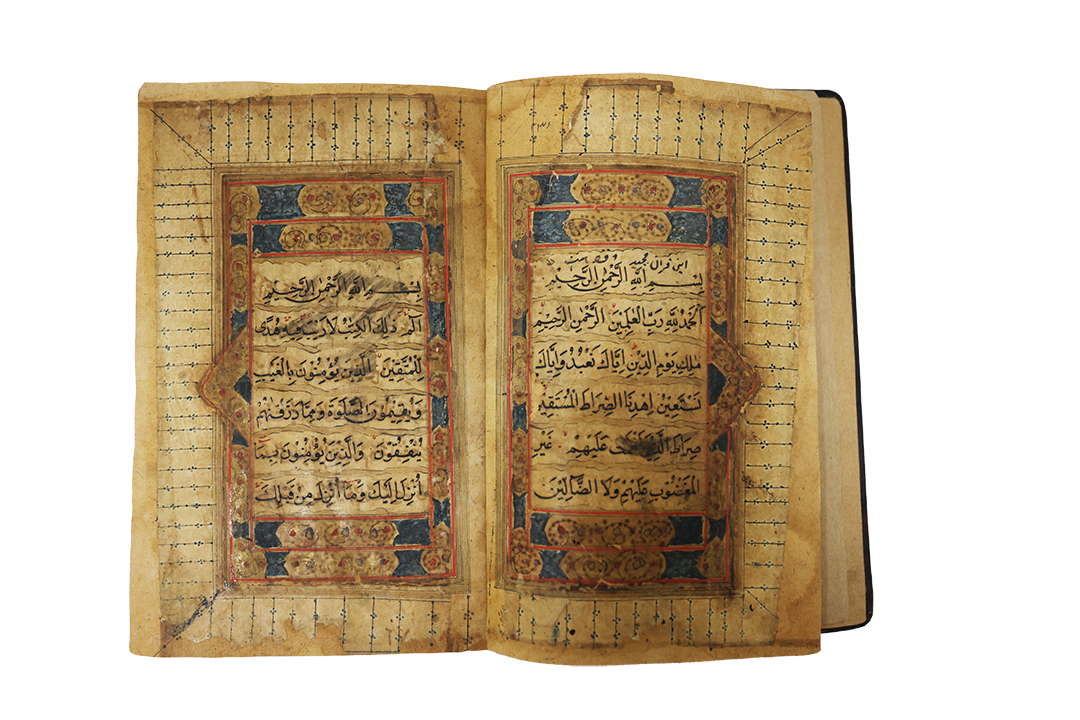 این قران مجید وقف است
بِسْمِ اللهِ الرَّحْمٰنِ الرَّحِيْمِ
اَلْحَمْدُ لِلّٰهِ رَبِّ الْعٰلَمِيْنَ الرَّحْمٰنِ الرَّحِيْمِ
مٰلِكِ يَوْمِ الدِّيْنِ اِيَّاكَ نَعْبُدُ وَاِيَّاكَ
نَسْتَعِيْنُ اِهْدِنَا الصِّرَاطَ الْمُسْتَقِيْمَ
صِرَاطَ الَّذِيْنَ عَلَيْهِمْ غَيْرِ
الْمَغْضُوْبِ عَلَيْهِمْ وَلَا الضَّالِّيْنَ
بِسْمِ اللهِ الرَّحْمٰنِ الرَّحِيْمِ
الٓمّٓ ذٰلِكَ الْكِتٰبُ لَا رَيْبَ فِيْهِ هُدًى
لِلْمُتَّقِيْنَ الَّذِيْنَ يُؤْمِنُوْنَ بِالْغَيْبِ
وَيُقِيْمُوْنَ الصَّلٰوةَ وَمِمَّا رَزَقْنٰهُمْ
يُنْفِقُوْنَ وَالَّذِيْنَ يُؤْمِنُوْنَ بِمَا
اُنْزِلَ اِلَيْكَ وَمَا اُنْزِلَ مِنْ قَبْلِكَ